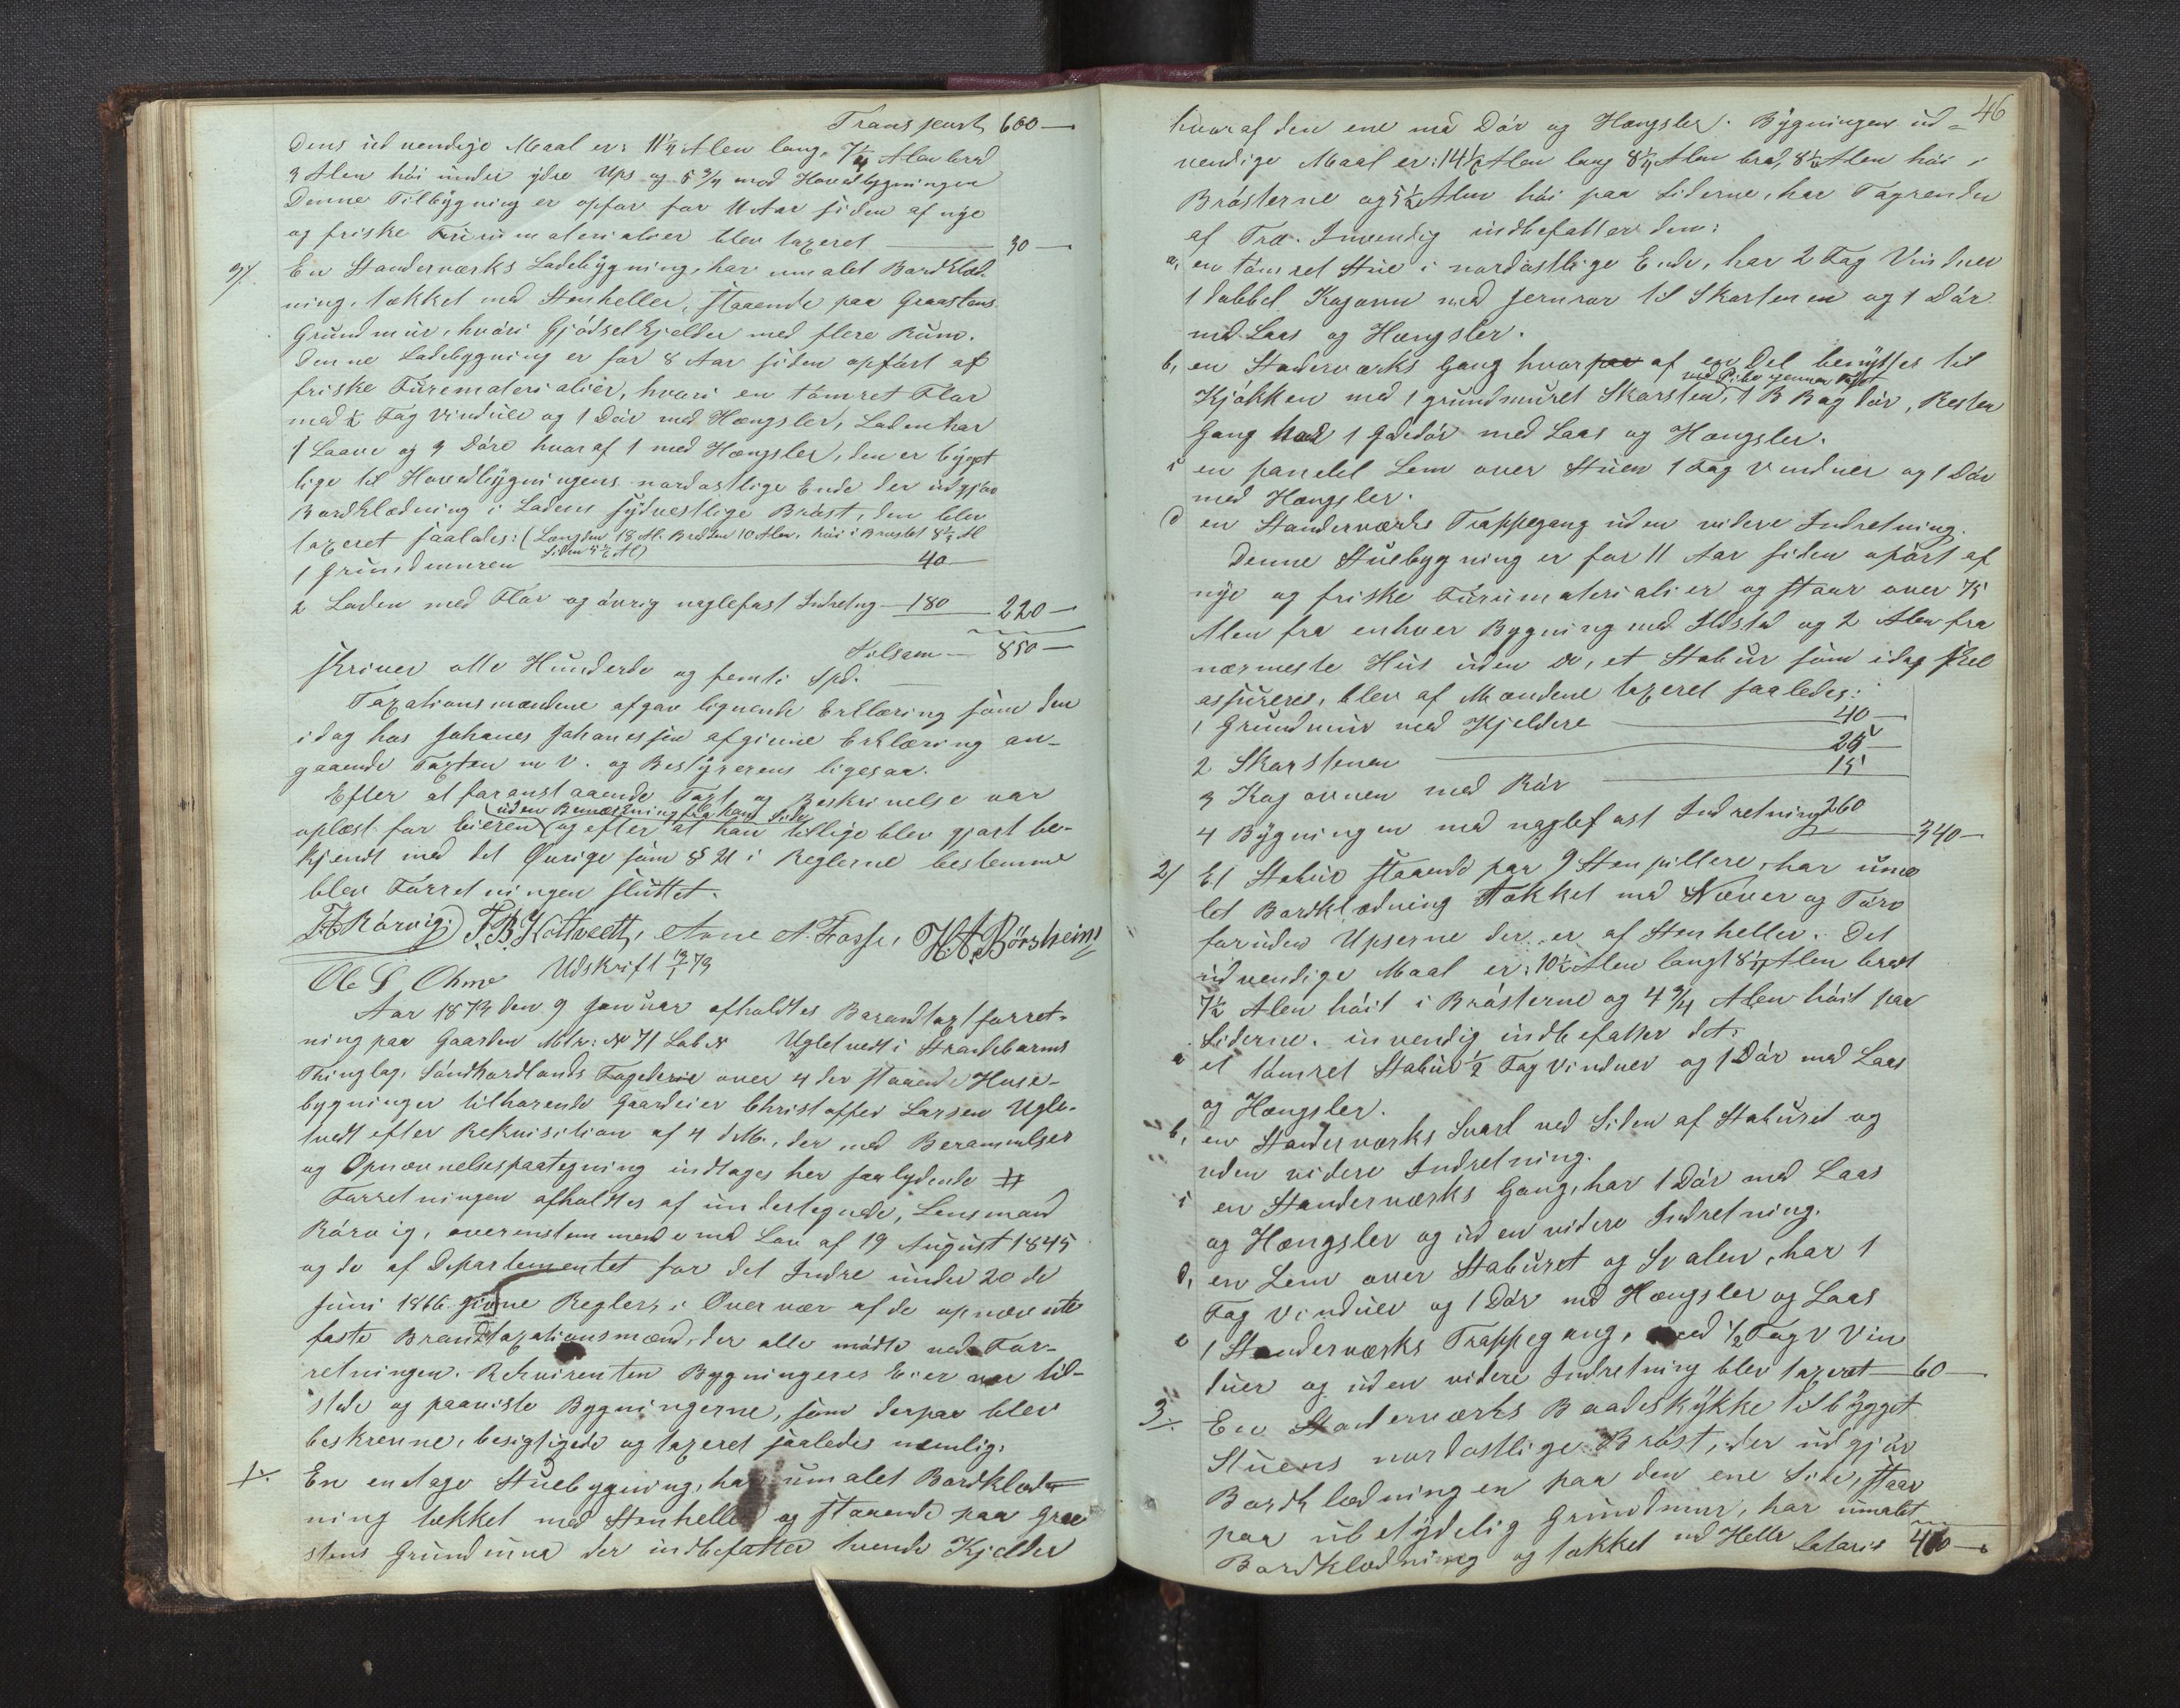 Transport 600 —
dens udvendige Maal er: 11 1/4 Alen lang, 7 1/4 Alen bred
3 Alen høi under ydre Ups og 5 3/4 mod Hovedbygningen
Denne Tilbygning er opfør for 11 Aar siden af nye
og friske Furumaterialier blev taxeret — 30 —
9/. En Standerværks Ladebygning, har umalet Bordklæd-
ning, tækket med Stenheller, staaende paa Graastens
Grundmur, hvori Gjødselkjelder med flere Rum.
Denne Ladebygning er for 8 Aar siden opført af
friske Furematerialier, hvori en tømret Flor
med 1/2 Fag Vinduer og 1 Dør med Hængsler, Laden har
1 Laave og 3 Døre hvoraf 1 med Hængsler, den er bygget
lige til Hovedbygningens nordostlige Ende der udgjør
Bordklædning i Ladens sydvestlige Brøst, den blev
taxeret saaledes: (Længden 18 Al. Bredden 10 Alen, høi i Brøstet 8 1/2 Al
Siden 5 1/2 Al)
1 Grundmuren — 40 —
2 Laden med Flor og øvrig naglefast Indretng — 180 — 220 —
Tilsam — 850 —
skriver otte Hundrede og femti Spd.
Taxationsmændene afgav lignende Erklæring som den
idag hos Johanes Johanessen afgivne Erklæring an-
gaaende Taxten m V. og Bestyrerens ligesaa.
Efter at foranstaaende Taxt og Beskrivelse var
(uden Bemærkning fra hans Side)
oplæst for Eieren og efter at han tillige blev gjort be-
kjendt med det Øvrige som § 21 i Reglerne bestemme
blev Forretningen sluttet.
Rørvig. T. B. Kottvedt, Arne A. Fosse, H. A. Börsheim
Ole S. Ohme Udskrift 19/1 73
Aar 1873 den 9 Januar afholdtes Barandtaxtforret-
ning paa Gaarden Mtr: N 71 Lob N Ugletvedt i Strandebarms
Thinglag, Søndhordlands Fogederie over 4 der staaende Huse-
bygninger tilhørende Gaardeier Christoffer Larsen Ugle-
tvedt efter Rekvisition af 4 d.M., der med Berammelses
og Opnævnelsespaategning indtages her saalydende #
Forretningen afholdtes af undertegnede, Lensmand
Rørvig, overenstemmende med Lov af 19 August 1845
og de af Departementet for det Indre under 20de
Juni 1866 givne Regler, i Overvær af de opnævnte
faste Brandtaxationsmænd, der alle mødte ved For-
retningen. Rekvirenten Bygningeres Eier var til-
stede og paaviste Bygningerne, som derpaa blev
beskrevne, besigtigede og taxeret saaledes nemlig:
1/. En entages Stuebygning, har umalet Bordklæd-
ning tækket med Stenheller og staaende paa Graa
stens Grundmur der indbefatter tvende Kjelder
46
hvoraf den ene med Dør og Hængsler. Bygningen ud-
vendige Maal er: 14 1/2 Alen lang 8 1/4 Alen bred, 8 1/2 Alen høi i
Brøsterne og 5 1/2 Alen høi paa Siderne, har Tagrender
af Træ. Invendig indbefatter den:
a, en tømret Stue i nordostlige Ende, har 2 Fag Vinduer
1 dobbel Kogovn med jernrør til Skorstenen og 1 Dør
med Laas og Hængsler.
b, en Standerværks Gang hvorpaa af en Del benyttes til
med Pibe gennem Taget
Kjøkken med 1 grundmuret Skorsten, 1 B Bagdør, Resten
Gang har 1 Gadedør med Laas og Hængsler.
c en panelet Lem over Stuen 1 Fag Vinduer og 1 Dør
med Hængsler.
d en Standerværks Trappegang uden videre Indretning.
Denne Stuebygning er for 11 Aar siden opørt af
nye og friske Furumaterialier og staar over 75
Alen fra enhver Bygning med Ildsted og 2 Alen fra
nærmeste Hus uden do, et Stabur som idag skal
assureres, blev af Mændene taxeret saaledes:
1 Grundmur med Kjeldere — 40 —
2 Skorstenen — 25 —
3 Kogovnen med Rør — 15
4 Bygningen med naglefast Indretning 260 — 340 —
2/ Et Stabur staaende paa 9 Stenpillere, har uma
let Bordklædning tækket med Næver og Tørv
foruden Upserne der er af Stenheller. Det
udvendige Maal er: 10 1/2 Alen langt 8 1/4 Alen bredt
7 1/2 Alen høit i Brøsterne og 4 3/4 Alen høit paa
Siderne. invendig indbefatter det:
a et tømret Stabur 1/2 Fag Vinduer og 1 Dør med Laas
og Hængsler.
b, en Standerværks Sval ved Siden af Staburet og
uden videre Indretning.
c en Standerværks Gang, har 1 Dør med Laas
og Hængsler og uden videre Indretning.
d, en Lem over Staburet og Svalen, har 1
Fag Vinduer og 1 Dør med Hængsler og Laas
e 1 Standerværks Trappegang, med 1/2 Fag V Vin
duer og uden videre Indretning blev taxeret — 60 —
3/. En Standerværks Baadeskykke tilbygget
Stuens nordostlige Brøst, der udgjør
Bordklædningen paa den ene Side, staar
paa ubetydelig Grundmur, har umalet
Bordklædning og tækket med Helle Lataris 400 —